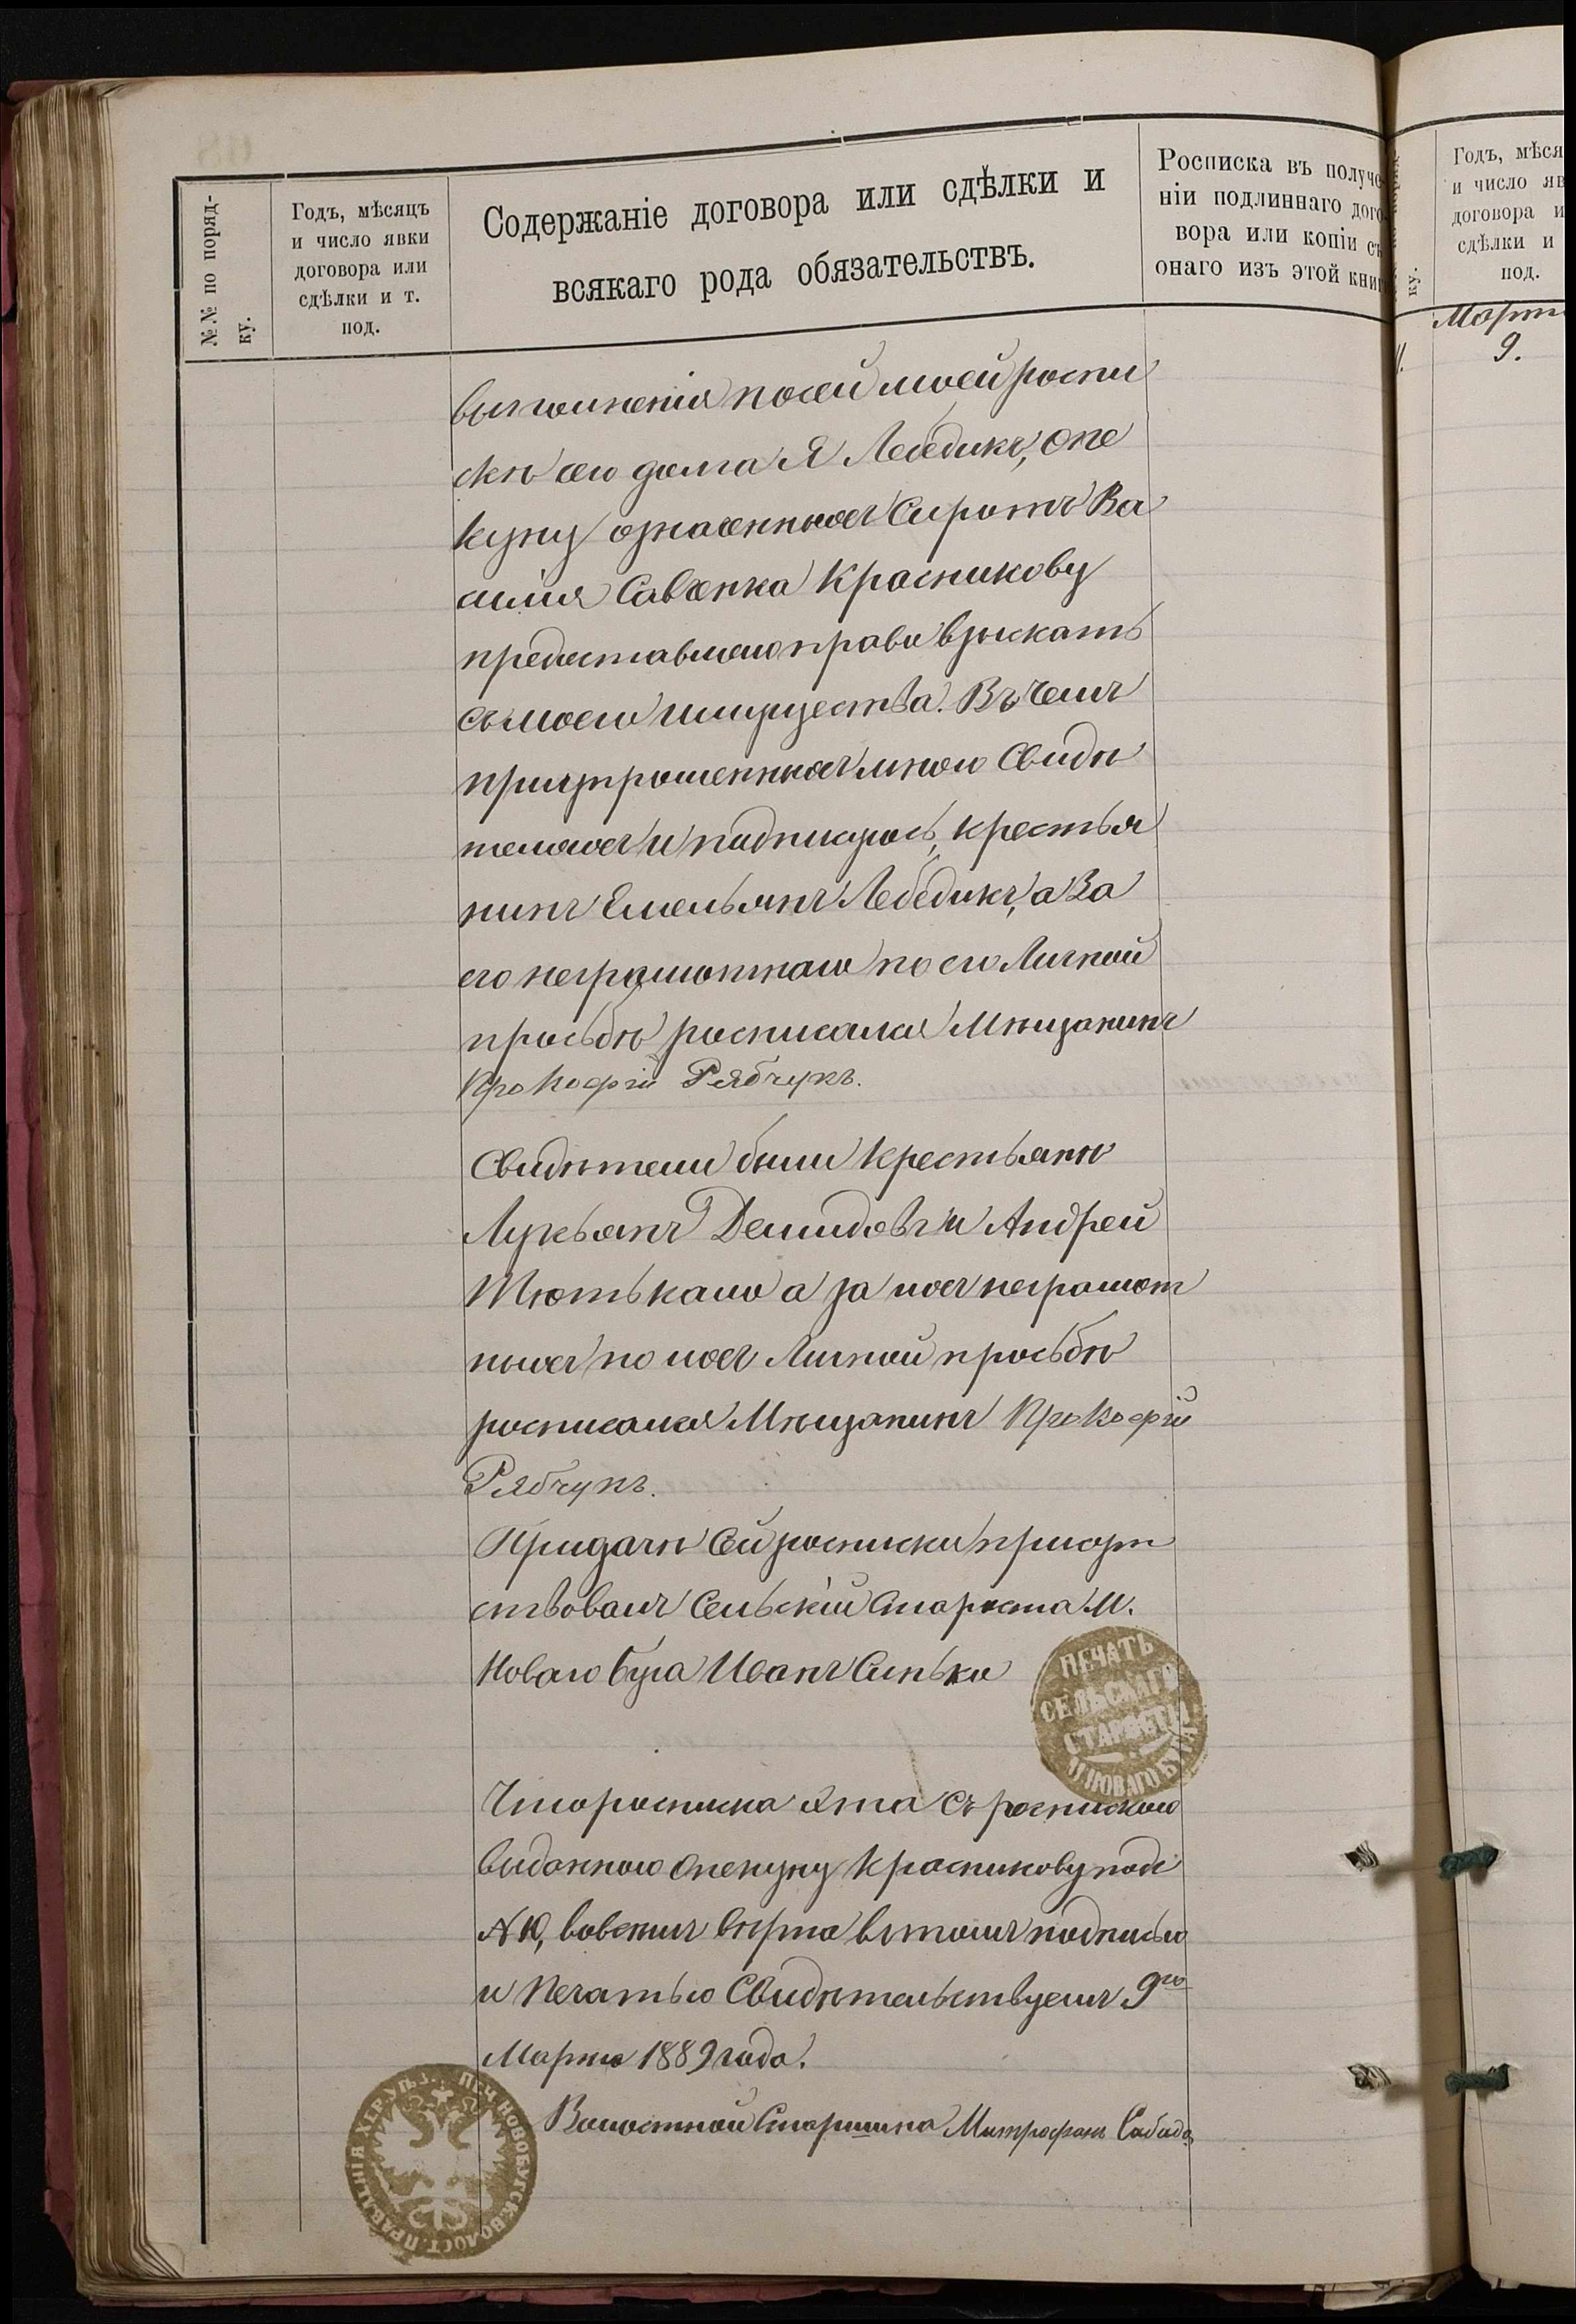 №№ по поряд-
ку.
Годъ, мѣсяцъ
и число явки
договора или
сдѣлки и т.
под.
Содержаніе договора или сдѣлки и
всякаго рода обязательствъ.
Росписка въ получе
ніи подлиннаго дого
вора или копіи съ
онаго изъ этой книг
выполненія посей моей роспи
скѣ сего долга Я Лебедикъ, опе
куну означенныхъ Сиротъ Ва
силія Савченка Красникову
предоставляю право взыскать
съ моего имущества. Въ чемъ
при упрошенныхъ мною Свидѣ
теляхъ и подписуюсь, крестья
нинъ Емельянъ Лебедикъ, а за
его неграмотнаго по его Личной
просьбѣ росписался Мѣщанинъ
Прокофій Рябчукъ.
Свидѣтели были крестьянѣ
Лукьянъ Демидовъ и Андрей
Тютькало а за ихъ неграмот
ныхъ по ихъ Личной просьбѣ
росписался Мѣщанинъ Прокофій
Рябчукъ.
При дачѣ сей росписки присут
ствовалъ Сельскій Староста М.
Новаго Буга Иванъ Синько
ПЕЧАТЬ
СЕЛЬСКАГО
СТАРОСТЫ
М. НОВАГО БУГА
Что росписка эта съ роспискою
выданною опекуну Красникову подъ
№ 10, вовсемъ вѣрна въ томъ подписью
и Печатью Свидѣтельствуемъ 9го
Марта 1889 года.
Волостной Старшина Митрофанъ
ПЕЧ. НОВОБУГСК. ВОЛОСТ. ПРАВЛЕНІЯ ХЕР. УѢ.
Годъ, мѣся
и число яв
договора и
сдѣлки и
под.
ку.
Март
9.